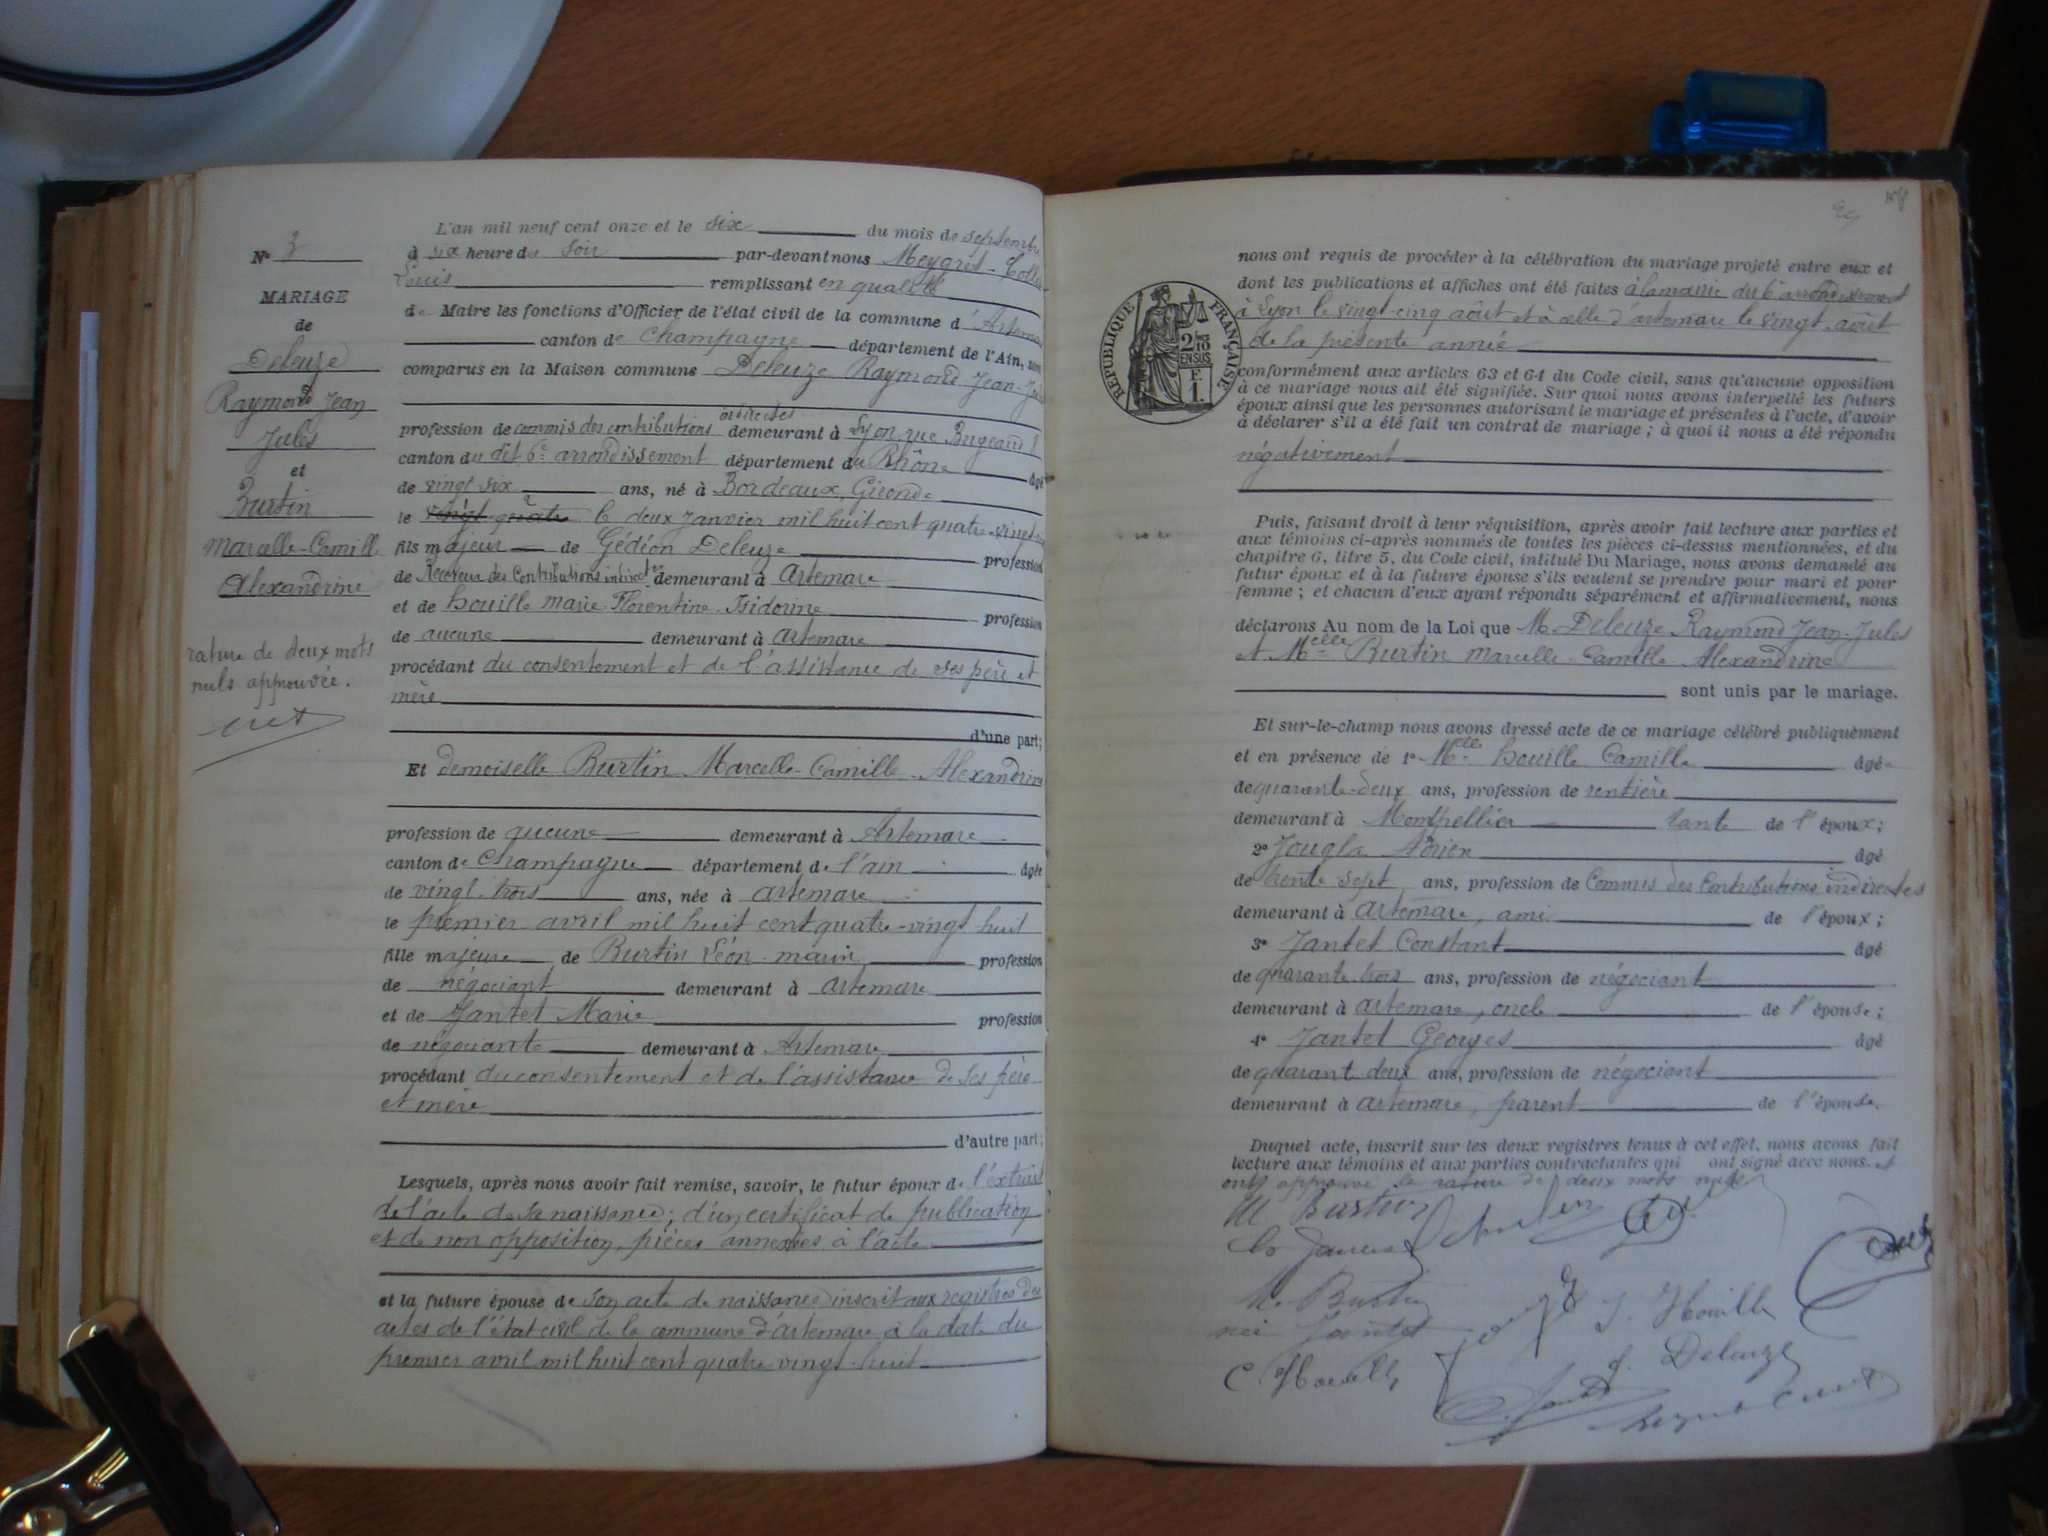 L'an mil neuf cent onze et le six du mois de septembre
à six heure du soir par-devant nous Meygret-Collet
Louis remplissant en qualité
de Maire les fonctions d'Officier de l'état civil de la commune d'Artemare
canton de Champagne département de l'Ain, sont
comparus en la Maison commune Deleuze Raymond Jean-Jules
indirectes
profession de commis des contributions demeurant à Lyon, rue Bugeaud
canton du dit 6e arrondissement département du Rhône âgé
de vingt six ans, né à Bordeaux, Gironde
le vingt quatre le deux janvier mil huit cent quatre-vingt
fils majeur de Gédéon Deleuze profession
de Receveur des Contributions indirectes demeurant à Artemare
et de houille Marie Florentine Isidorine profession
de aucune demeurant à artemare
procédant du consentement et de l'assistance de ses père et
mère
d'une part;
Et demoiselle Burtin Marcelle-Camille-Alexandrine
profession de aucune demeurant à Artemare
canton de Champagne département de l'ain âgée
de vingt trois ans, née à artemare
le premier avril mil huit cent quatre-vingt huit
fille majeure de Burtin Léon-marin profession
de négociant demeurant à artemare
et de Jantet Marie profession
de négociante demeurant à Artemare
procédant du consentement et de l'assistance de ses père
et mère
d'autre part;
Lesquels, après nous avoir fait remise, savoir, le futur époux de l'extrait
de l'acte de sa naissance; d'un certificat de publication
et de non opposition, pièces annexées à l'acte
et la future épouse de son acte de naissance inscrit aux registres des
actes de l'état civil de la commune d'artemare à la date du
premier avril mil huit cent quatre vingt-huit
No 3
MARIAGE
de
Deleuze
Raymond Jean
Jules
et
Burtin
Marcelle-Camille
Alexandrine
rature de deux mots
nuls approuvée.
29
RÉPUBLIQUE FRANÇAISE
2/10
EN SUS
F.
1.
nous ont requis de procéder à la célébration du mariage projeté entre eux et
dont les publications et affiches ont été faites à la mairie du 6e arrondissement
à Lyon le vingt-cinq août et à celle d'artemare le vingt août
de la présente année
conformément aux articles 63 et 64 du Code civil, sans qu'aucune opposition
à ce mariage nous ait été signifiée. Sur quoi nous avons interpellé les futurs
époux ainsi que les personnes autorisant le mariage et présentes à l'acte, d'avoir
à déclarer s'il a été fait un contrat de mariage; à quoi il nous a été répondu
négativement
Puis, faisant droit à leur réquisition, après avoir fait lecture aux parties et
aux témoins ci-après nommés de toutes les pièces ci-dessus mentionnées, et du
chapitre 6, titre 5, du Code civil, intitulé Du Mariage, nous avons demandé au
futur époux et à la future épouse s'ils veulent se prendre pour mari et pour
femme; et chacun d'eux ayant répondu séparément et affirmativement, nous
déclarons Au nom de la Loi que M. Deleuze Raymond Jean-Jules
et Melle Burtin Marcelle-Camille-Alexandrine
sont unis par le mariage.
Et sur-le-champ nous avons dressé acte de ce mariage célébré publiquement
et en présence de 1o Melle houille Camille âgée
de quarante-deux ans, profession de rentière
demeurant à Montpellier tante de l'époux;
2o Jougla Adrien âgé
de trente sept ans, profession de Commis des Contributions indirectes
demeurant à artemare, ami de l'époux;
3o Jantet Constant âgé
de quarante trois ans, profession de négociant
demeurant à artemare, oncle de l'épouse;
4o Jantet Georges âgé
de quarant-deux ans, profession de négociant
demeurant à artemare, parent de l'épouse
Duquel acte, inscrit sur les deux registres tenus à cet effet, nous avons fait
lecture aux témoins et aux parties contractantes qui ont signé avec nous. et
ont approuvé la rature de deux mots nuls
M Burtin
M. Burtin
née Jantet
J. Houille
C. Houille
Deleuze